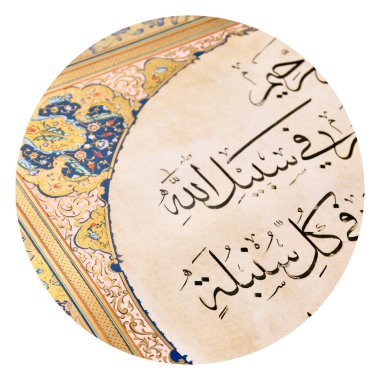 رحيم
في سَبِيلِ اللهِ
في كُلِّ سُنْبُلَةٍ